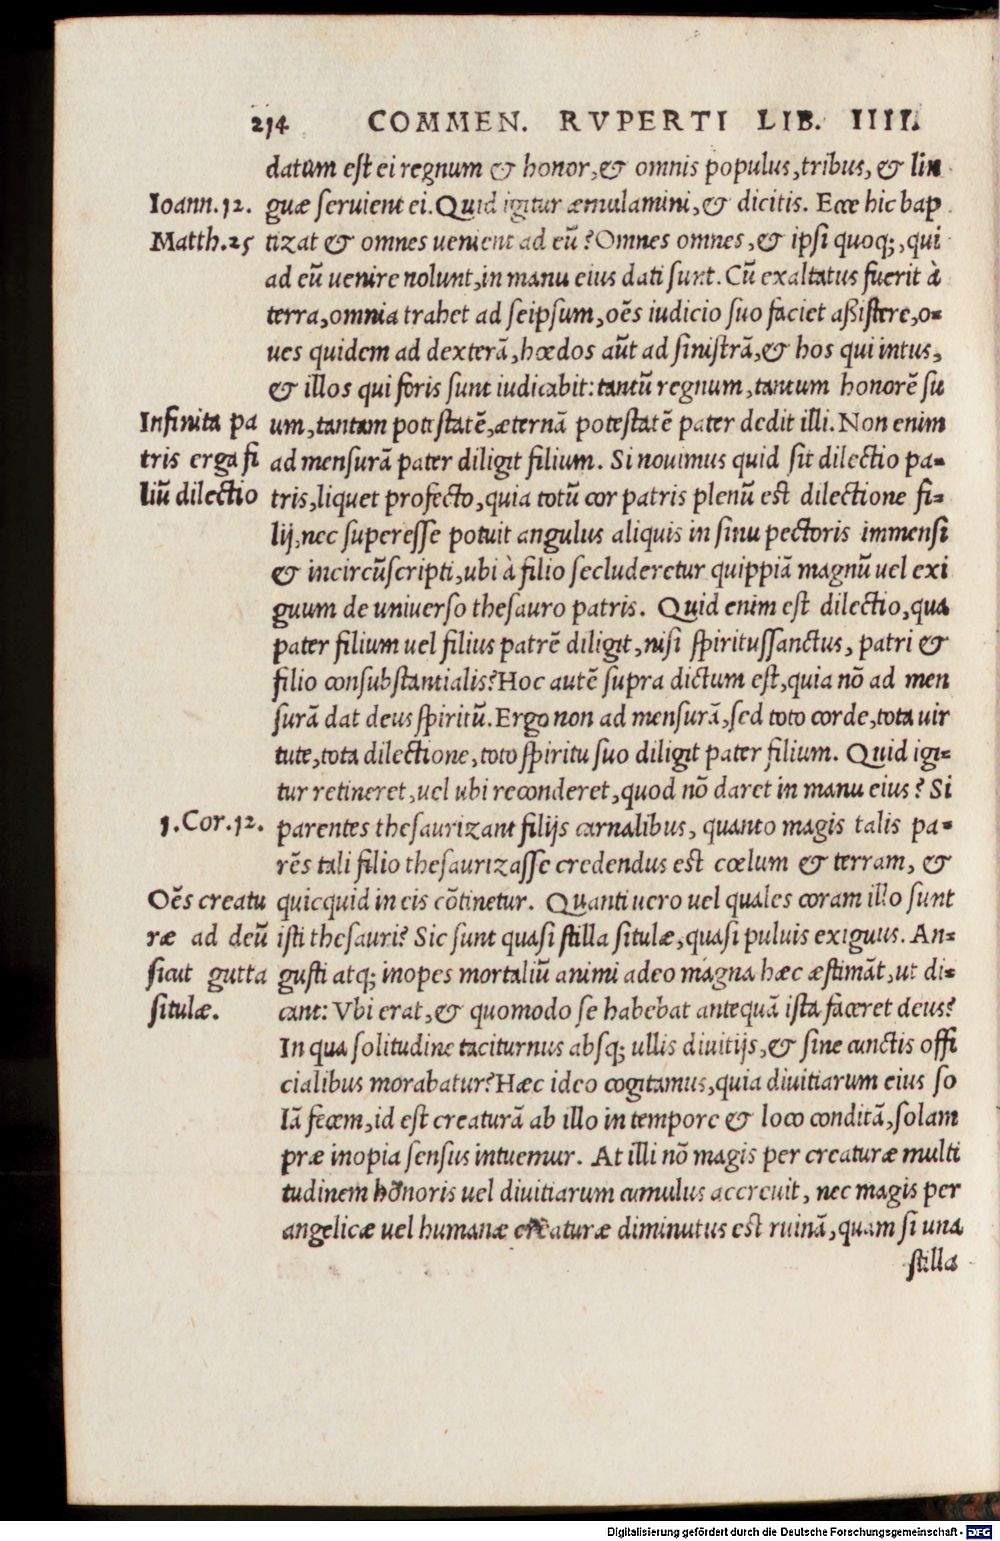 214 COMMEN. RVPERTI LIB. IIII.
datum est ei regnum & honor, & omnis populus, tribus, & lin
Ioann.12. guæ seruient ei. Quid igitur æmulamini, & dicitis. Ecce hic bap
Matth.25 tizat & omnes uenient ad eū? Omnes omnes, & ipsi quoq;, qui
ad eū uenire nolunt, in manu eius dati sunt. Cū exaltatus fuerit à
terra, omnia trahet ad seipsum, oēs iudicio suo faciet aßistere, o-
ues quidem ad dexterā, hœdos aūt ad sinistrā, & hos qui intus,
& illos qui foris sunt iudicabit: tantū regnum, tantum honorē su
Infinita pa um, tantam potestatē, æternā potestatē pater dedit illi. Non enim
tris erga fi ad mensurā pater diligit filium. Si nouimus quid sit dilectio pa-
liū dilectio tris, liquet profecto, quia totū cor patris plenū est dilectione fi-
lij, nec superesse potuit angulus aliquis in sinu pectoris immensi
& incircūscripti, ubi à filio secluderetur quippiā magnū uel exi
guum de uniuerso thesauro patris. Quid enim est dilectio, qua
pater filium uel filius patrē diligit, nisi spiritussanctus, patri &
filio consubstantialis? Hoc autē supra dictum est, quia nō ad men
surā dat deus spiritū. Ergo non ad mensurā, sed toto corde, tota uir
tute, tota dilectione, toto spiritu suo diligit pater filium. Quid igi-
tur retineret, uel ubi reconderet, quod nō daret in manu eius? Si
1.Cor.12. parentes thesaurizant filijs carnalibus, quanto magis talis pa-
rēs tali filio thesaurizasse credendus est cœlum & terram, &
Oēs creatu quicquid in eis cōtinetur. Quanti uero uel quales coram illo sunt
ræ ad deū isti thesauri? Sic sunt quasi stilla situlæ, quasi puluis exiguus. An-
sicut gutta gusti atq; inopes mortaliū animi adeo magna hæc æstimāt, ut di-
situlæ. cant: Vbi erat, & quomodo se habebat antequā ista faceret deus?
In qua solitudine taciturnus absq; ullis diuitijs, & sine cunctis offi
cialibus morabatur? Hæc ideo cogitamus, quia diuitiarum eius so
lā fecem, id est creaturā ab illo in tempore & loco conditā, solam
præ inopia sensus intuemur. At illi nō magis per creaturæ multi
tudinem honoris uel diuitiarum cumulus accreuit, nec magis per
angelicæ uel humanæ creaturæ diminutus est ruinā, quam si una
stilla
Digitalisierung gefördert durch die Deutsche Forschungsgemeinschaft - DFG